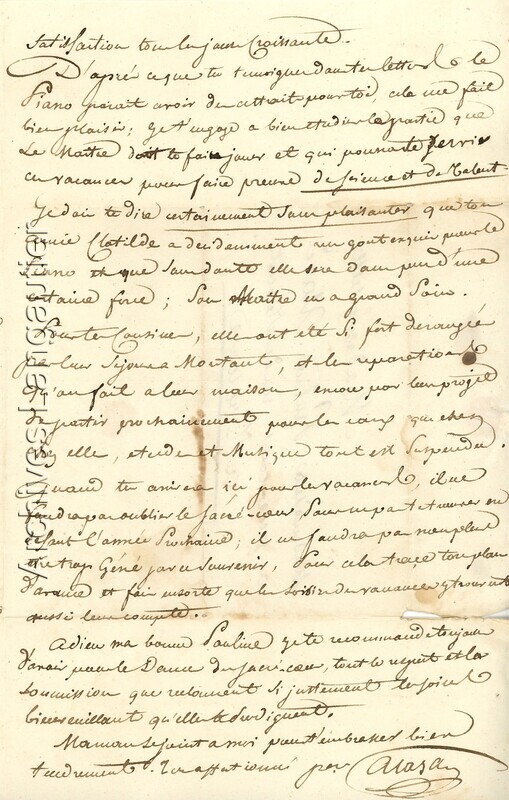 satisfaction tous les jours Croissante.
D'après ce que tu temoigne dans ter lettre le
Piano parait avoir de attrait pour toi, cela me fait
bien plaisir; je t'engage a bien etudier la partie que
Le Maitre doit te faire jouer et qui pourra te servir
en vacances pour faire preuve de Science et de Talent.
Je dois te dire certainement sans plaisanter que ton
amie Clotilde a decidemment un gout exquis pour le
Piano et que sans doute elle sera dans peu d'une
certaine force; Son Maitre en a grand Soin.
Pour tes Cousines, elle ont été si fort derangée
par leur Sejour a Mortant, et les reparations
qu'on fait a leur maison, encore par leur projet
de partir prochainement pour les eaux que chez
elle, etude et Musique tout est Suspendu.
Quand tu arrivera ici pour les vacances, il ne
faudra pas oublier le Sacré-coeur Pour un part
l'année Prochaine; il ne faudra pas non plus
etre trop Géné par ce Souvenir, Pour cela trace ton plan
d'avance et fait ensorte que les loisirs des vacances y trouvent
aussi leur compte.
Adieu ma bonne Pauline je te recommande toujours
d'avoir pour le Dames du Sacré-coeur, tout le respect et la
Soumission que reclament si justement les soins
bienveuillant qu'elle te Prodiguent.
Maman Se joint a moi pour t'embrasser bien
tendrement. Ton affectionné père